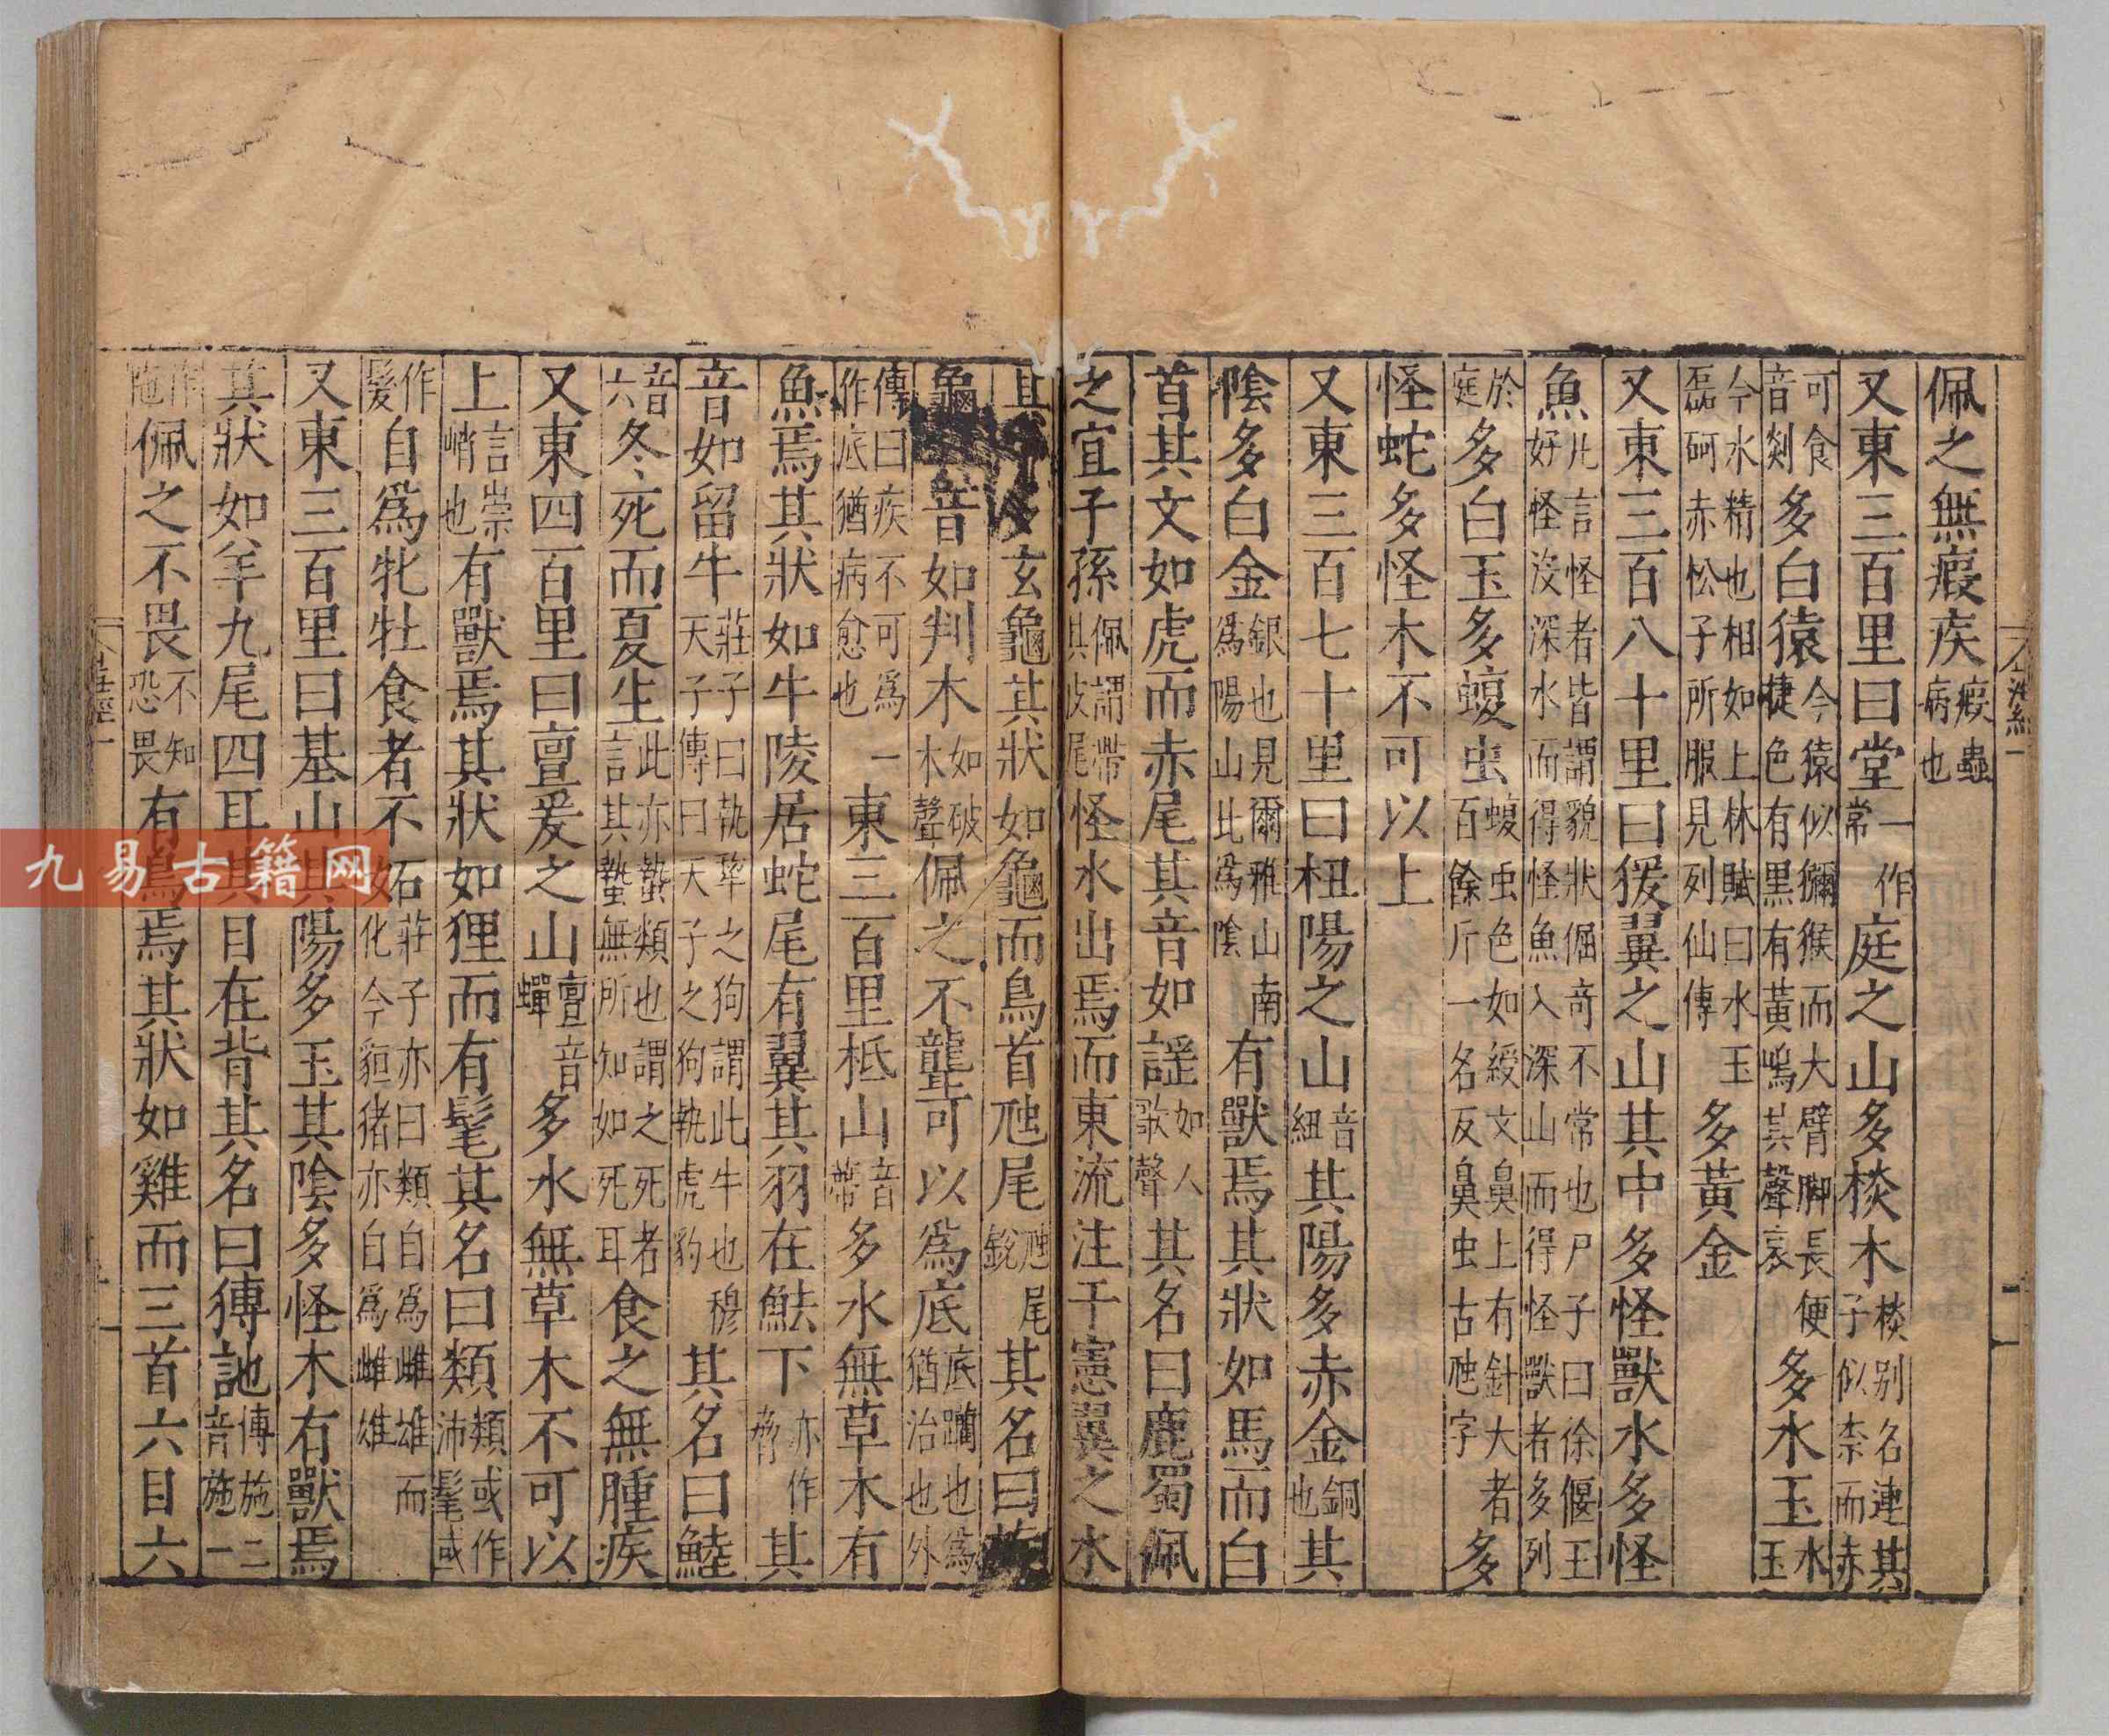 佩之無瘕疾瘕蟲病也
又東三百里曰堂一作常庭之山多棪木棪别名連其子似柰而赤
可食音剡多白猿今猿似獼猴而大臂脚長便捷色有黑有黃鳴其聲哀多水玉水玉
今水精也相如上林賦曰水玉磊砢赤松子所服見列仙傳多黃金
又東三百八十里曰猨翼之山其中多怪獸水多怪
魚凡言怪者皆謂貌狀倔奇不常也尸子曰徐偃王好怪没深水而得怪魚入深山而得怪獸者多列
於庭多白玉多蝮虫蝮虫色如綬文鼻上有針大者百餘斤一名反鼻虫古虺字多
怪蛇多怪木不可以上
又東三百七十里曰杻陽之山音紐其陽多赤金銅也其
陰多白金銀也見爾雅山南爲陽山北爲陰有獸焉其狀如馬而白
首其文如虎而赤尾其音如謡如人歌聲其名曰鹿蜀佩
之宜子孫佩謂帶其皮尾怪水出焉而東流注于憲翼之水
其中多玄龜其狀如龜而鳥首虺尾虺尾銳其名曰
龜音如判木如破木聲佩之不聾可以爲底底躪也爲猶治也外
傳曰疾不可爲一作底猶病愈也東三百里柢山音蔕多水無草木有
魚焉其狀如牛陵居蛇尾有翼其羽在魼下亦作脅其
音如留牛莊子曰執犂之狗謂此牛也穆天子傳曰天子之狗執虎豹其名曰鯥
音六冬死而夏生此亦蟄類也謂之死者言其蟄無所知如死耳食之無腫疾
又東四百里曰亶爰之山亶音蟬多水無草木不可以
上言崇峭也有獸焉其狀如狸而有髦其名曰類類或作沛髦或
作髮自爲牝牡食者不妬莊子亦曰類自爲雌雄而化今貆猪亦自爲雌雄
又東三百里曰基山其陽多玉其陰多怪木有獸焉
其狀如羊九尾四耳其目在背其名曰猼訑傅施二音施一
作陁佩之不畏不知恐畏有鳥焉其狀如雞而三首六目六
山海經一
九易古籍网